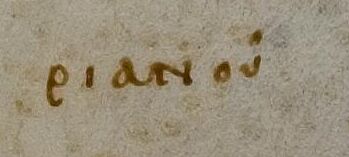 ριανού